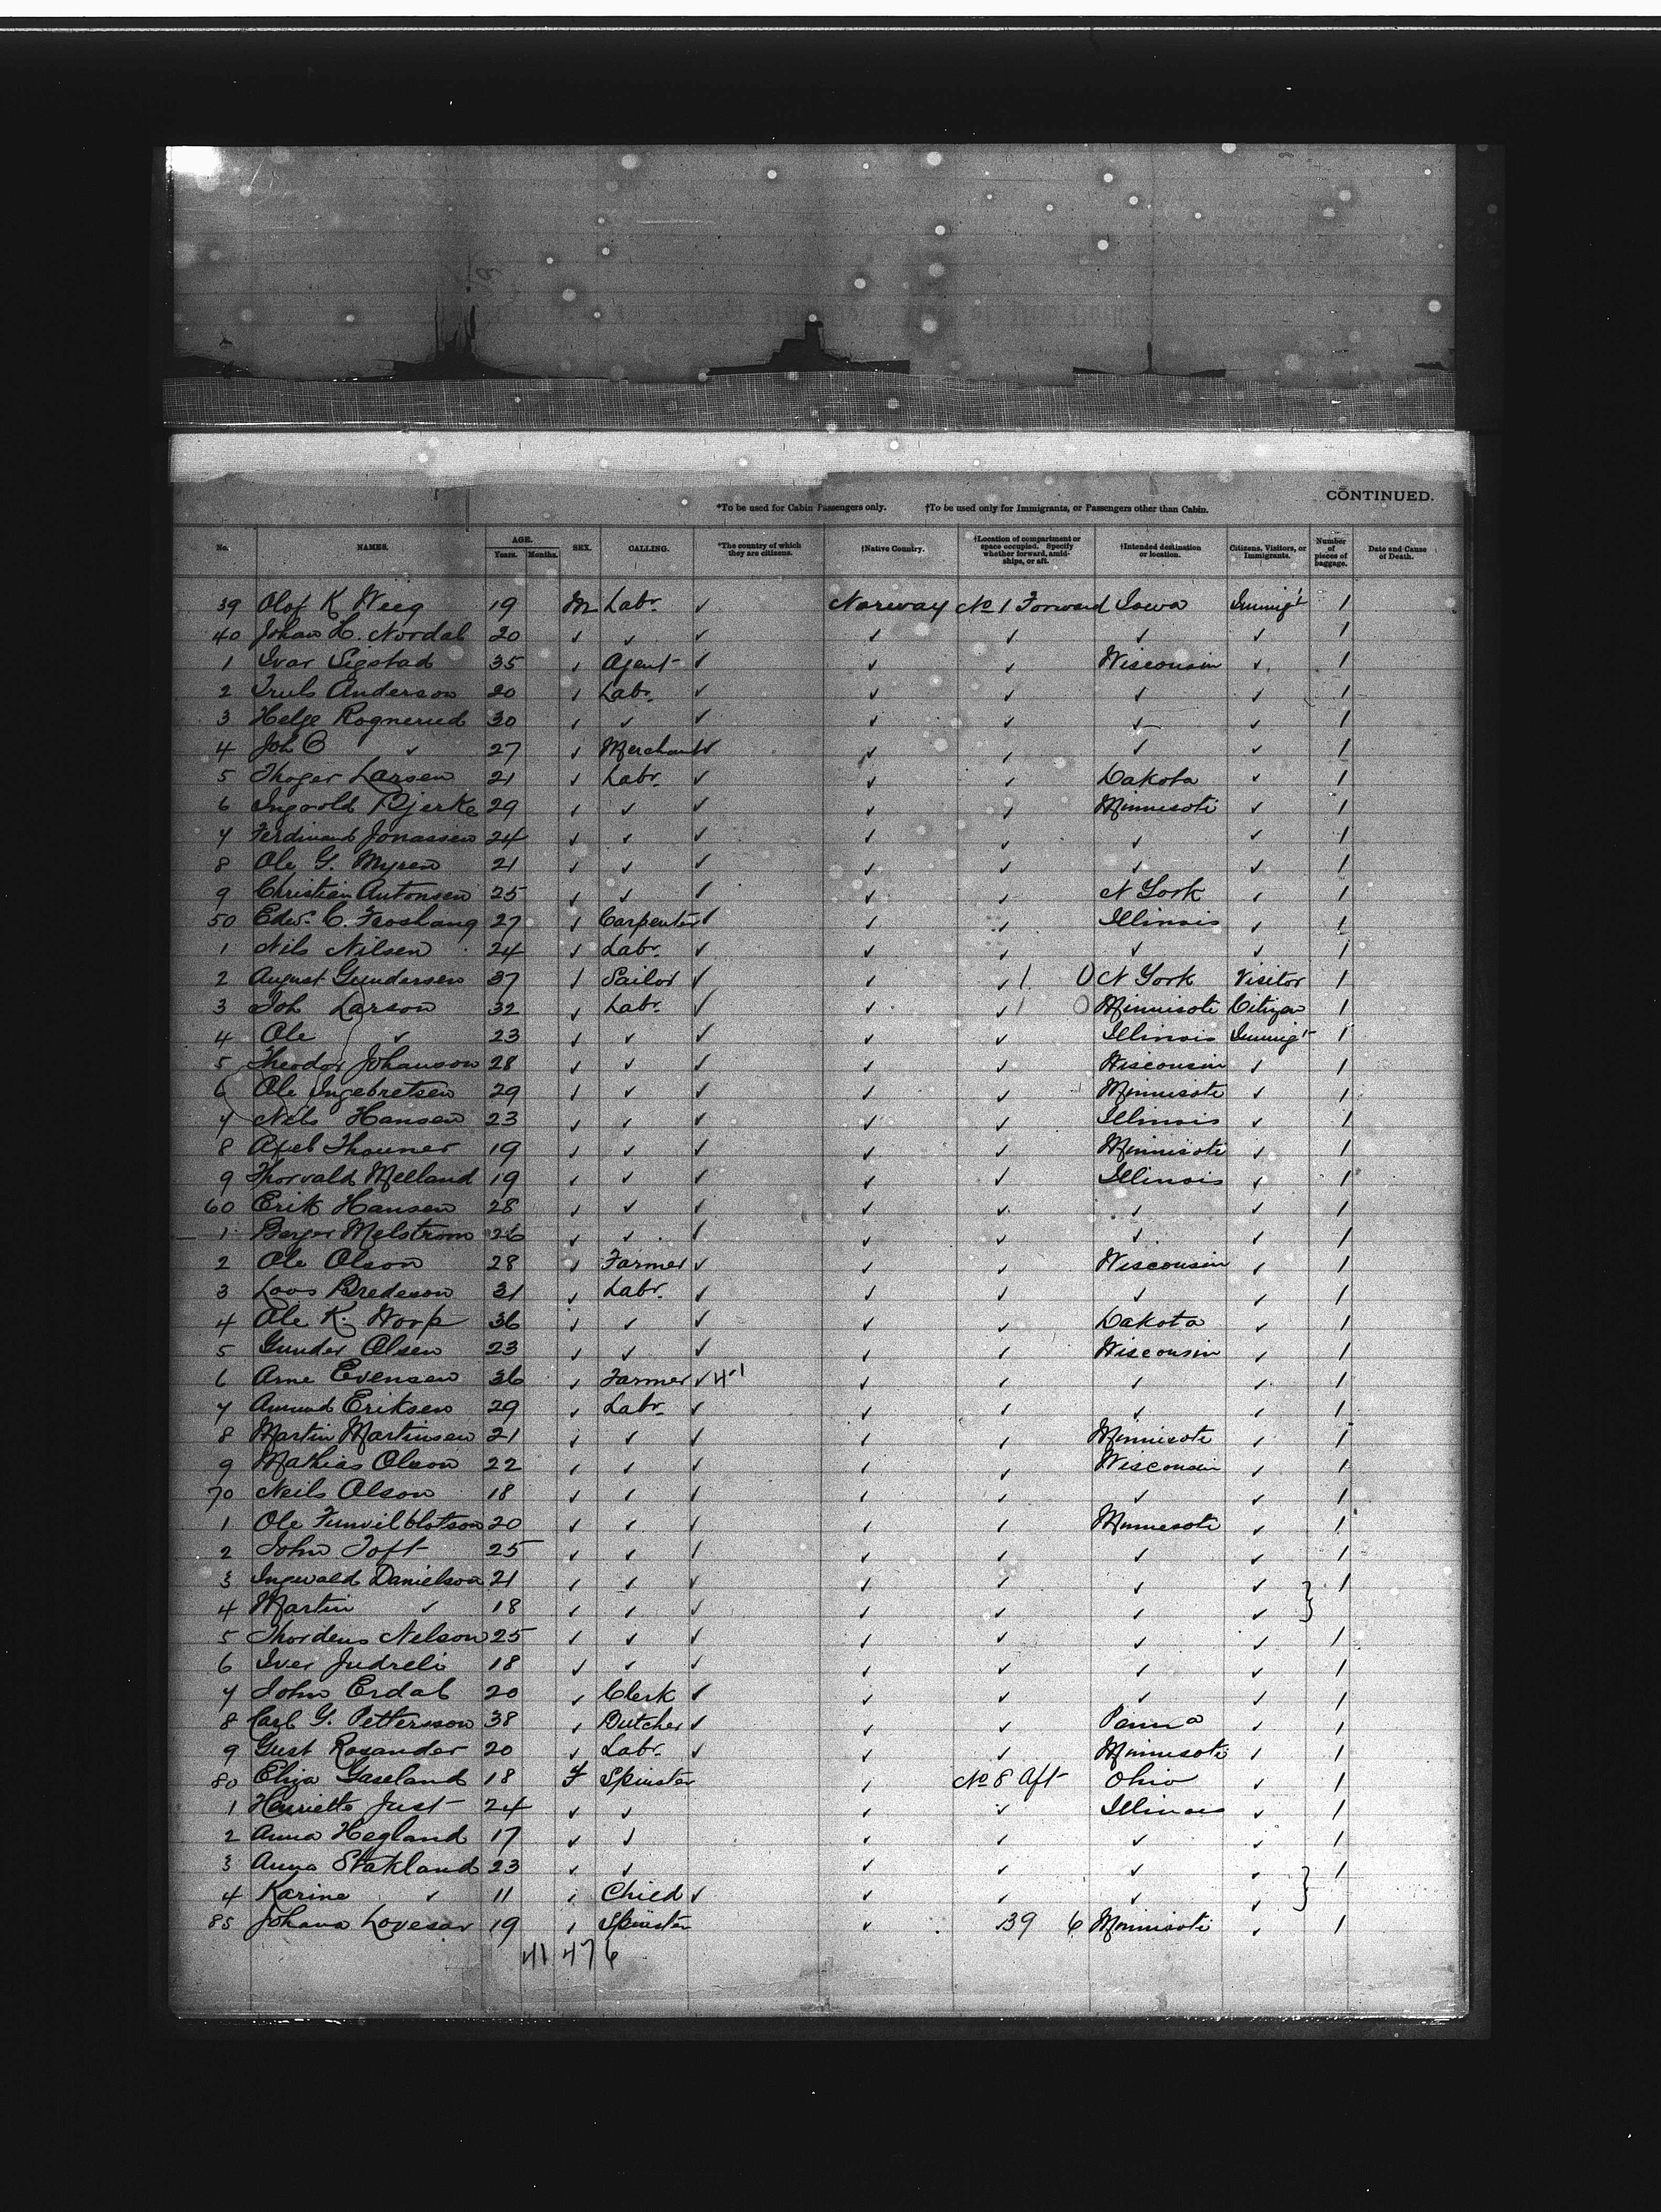 CONTINUED.
*To be used for Cabin Passengers only. †To be used only for Immigrants, or Passengers other than Cabin.
No. NAMES. AGE. Years. Months. SEX. CALLING. *The country of which they are citizens. †Native Country. †Location of compartment or space occupied. Specify whether forward, amidships, or aft. †Intended destination or location. Citizens, Visitors, or Immigrants. Number of pieces of baggage. Date and Cause of Death.
39 Olof K Weeg 19 M Labr. ✓ Norway No 1 Forward Iowa Immigt 1
40 Johan H. Nordal 20 ✓ ✓ ✓ ✓ ✓ ✓ ✓ 1
1 Ivar Sigstad 35 ✓ Agent ✓ ✓ ✓ Wisconsin ✓ 1
2 Truls Anderson 20 ✓ Labr. ✓ ✓ ✓ ✓ ✓ 1
3 Helge Rognerud 30 ✓ ✓ ✓ ✓ ✓ ✓ ✓ 1
4 Joh O ✓ 27 ✓ Merchant ✓ ✓ ✓ ✓ ✓ 1
5 Thoger Larsen 21 ✓ Labr. ✓ ✓ ✓ Dakota ✓ 1
6 Ingvold Bjerke 29 ✓ ✓ ✓ ✓ ✓ Minnisoti ✓ 1
7 Ferdinand Jonassen 24 ✓ ✓ ✓ ✓ ✓ ✓ ✓ 1
8 Ole G. Myren 21 ✓ ✓ ✓ ✓ ✓ ✓ ✓ 1
9 Christian Antonsen 25 ✓ ✓ ✓ ✓ ✓ N York ✓ 1
50 Edw. C. Froshang 27 ✓ Carpenter ✓ ✓ ✓ Illinois ✓ 1
1 Nils Nilsen 24 ✓ Labr. ✓ ✓ ✓ ✓ ✓ 1
2 August Gundersen 37 ✓ Sailor ✓ ✓ ✓ 1 0 N York Visitor 1
3 Joh Larson 32 ✓ Labr. ✓ ✓ ✓ 1 0 Minnisoti Citizen 1
4 Ole ✓ 23 ✓ ✓ ✓ ✓ ✓ Illinois Immigt 1
5 Theodor Johanson 28 ✓ ✓ ✓ ✓ ✓ Wisconsin ✓ 1
6 Ole Ingebretsen 29 ✓ ✓ ✓ ✓ ✓ Minnisoti ✓ 1
7 Nils Hansen 23 ✓ ✓ ✓ ✓ ✓ Illinois ✓ 1
8 Axel Thauner 19 ✓ ✓ ✓ ✓ ✓ Minnisoti ✓ 1
9 Thorvald Melland 19 ✓ ✓ ✓ ✓ ✓ Illinois ✓ 1
60 Erik Hansen 28 ✓ ✓ ✓ ✓ ✓ ✓ ✓ 1
1 Berger Melstrom 26 ✓ ✓ ✓ ✓ ✓ ✓ ✓ 1
2 Ole Olson 28 ✓ Farmer ✓ ✓ ✓ Wisconsin ✓ 1
3 Loos Bredeson 31 ✓ Labr. ✓ ✓ ✓ ✓ ✓ 1
4 Ole K. Worp 36 ✓ ✓ ✓ ✓ ✓ Dakota ✓ 1
5 Gunder Olsen 23 ✓ ✓ ✓ ✓ ✓ Wisconsin ✓ 1
6 Arne Evensen 36 ✓ Farmer ✓ 4-1 ✓ ✓ ✓ ✓ 1
7 Amund Eriksen 29 ✓ Labr. ✓ ✓ ✓ ✓ ✓ 1
8 Martin Martinsen 21 ✓ ✓ ✓ ✓ ✓ Minnisoti ✓ 1
9 Mathias Olson 22 ✓ ✓ ✓ ✓ ✓ Wisconsin ✓ 1
70 Neils Olson 18 ✓ ✓ ✓ ✓ ✓ ✓ ✓ 1
1 Ole 20 ✓ ✓ ✓ ✓ ✓ Minnesoti ✓ 1
2 John Toft 25 ✓ ✓ ✓ ✓ ✓ ✓ ✓ 1
3 Ingwald Danielson 21 ✓ ✓ ✓ ✓ ✓ ✓ ✓ } 1
4 Martin ✓ 18 ✓ ✓ ✓ ✓ ✓ ✓ ✓
5 Thordens Nelson 25 ✓ ✓ ✓ ✓ ✓ ✓ ✓ 1
6 Iver Judreli 18 ✓ ✓ ✓ ✓ ✓ ✓ ✓ 1
7 John Erdal 20 ✓ Clerk ✓ ✓ ✓ ✓ ✓ 1
8 Carl G. Petterson 38 ✓ Butcher ✓ ✓ ✓ Penna ✓ 1
9 Gust Rosander 20 ✓ Labr. ✓ ✓ ✓ Minnisoti ✓ 1
80 Eliza Gaseland 18 F Spinster ✓ No 8 Aft Ohio ✓ 1
1 Henriette Just 24 ✓ ✓ ✓ ✓ Illinois ✓ 1
2 Anna Hegland 17 ✓ ✓ ✓ ✓ ✓ ✓ 1
3 Anna Stakland 23 ✓ ✓ ✓ ✓ ✓ ✓ } 1
4 Karine ✓ 11 ✓ Child ✓ ✓ ✓ ✓ ✓
85 Johana Lovesar 19 ✓ Spinster ✓ 39 6 Minnisoti ✓ 1
41 47 6